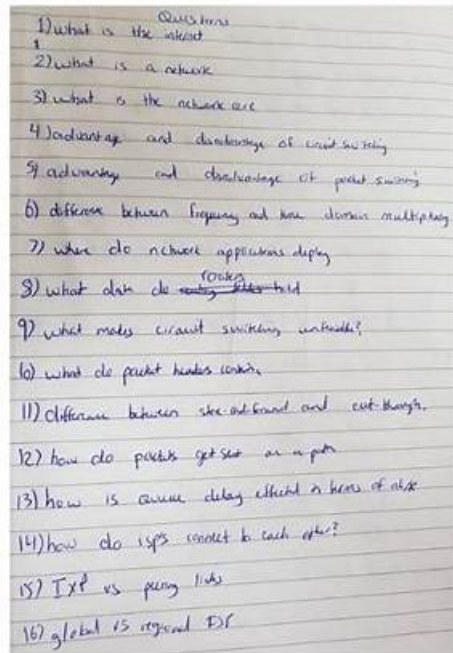 Questions
1) what is the internet
1
2) what is a network
3) what is the network core
4) advantage and disadvantage of circuit switching
5) advantage and disadvantage of packet switching
6) difference between frequency and time domain multiplexing
7) where do network applications deploy
routers
8) what data do hold
9) what makes circuit switching
10) what do packet headers contain
11) difference between store and forward and cut-through.
12) how do packets get sent on a path
13) how is queue delay effected in terms of
14) how do isps connect to each other?
15) IXP vs peering links
16) global vs regional ISP